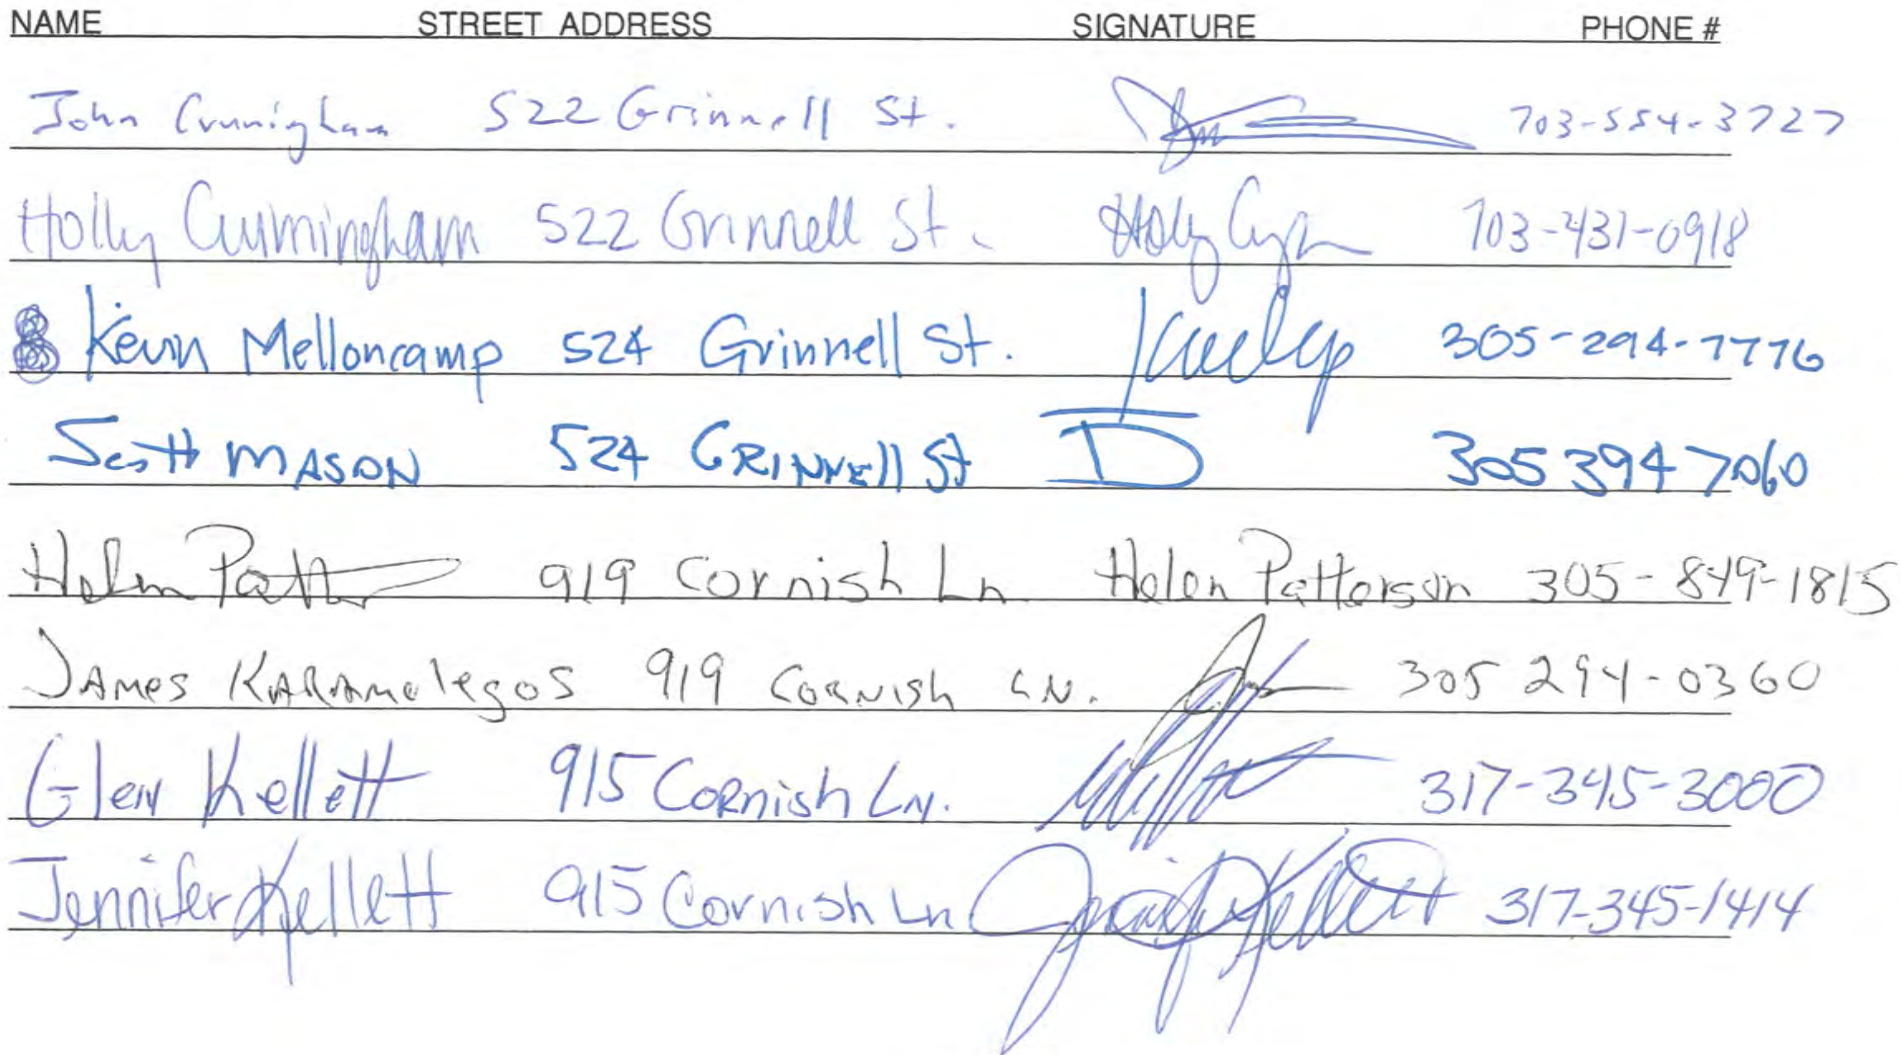 NAME STREET ADDRESS SIGNATURE PHONE #
John Crunigham 522 Grinnell St. 703-554-3727
Holly Cunningham 522 Grinnell St. 703-431-0918
Kevin Melloncamp 524 Grinnell St. 305-294-7776
Scott MASON 524 GRINNEll St 305 394 7060
Helen Patt 919 Cornish Ln Helen Patterson 305-849-1815
JAMES KARAMAlegos 919 CORNISh LN. 305 294-0360
Glen Kellett 915 CORNish LN. 317-345-3000
Jennifer Kellett 915 Cornish Ln Jennifer Kellett 317-345-1414